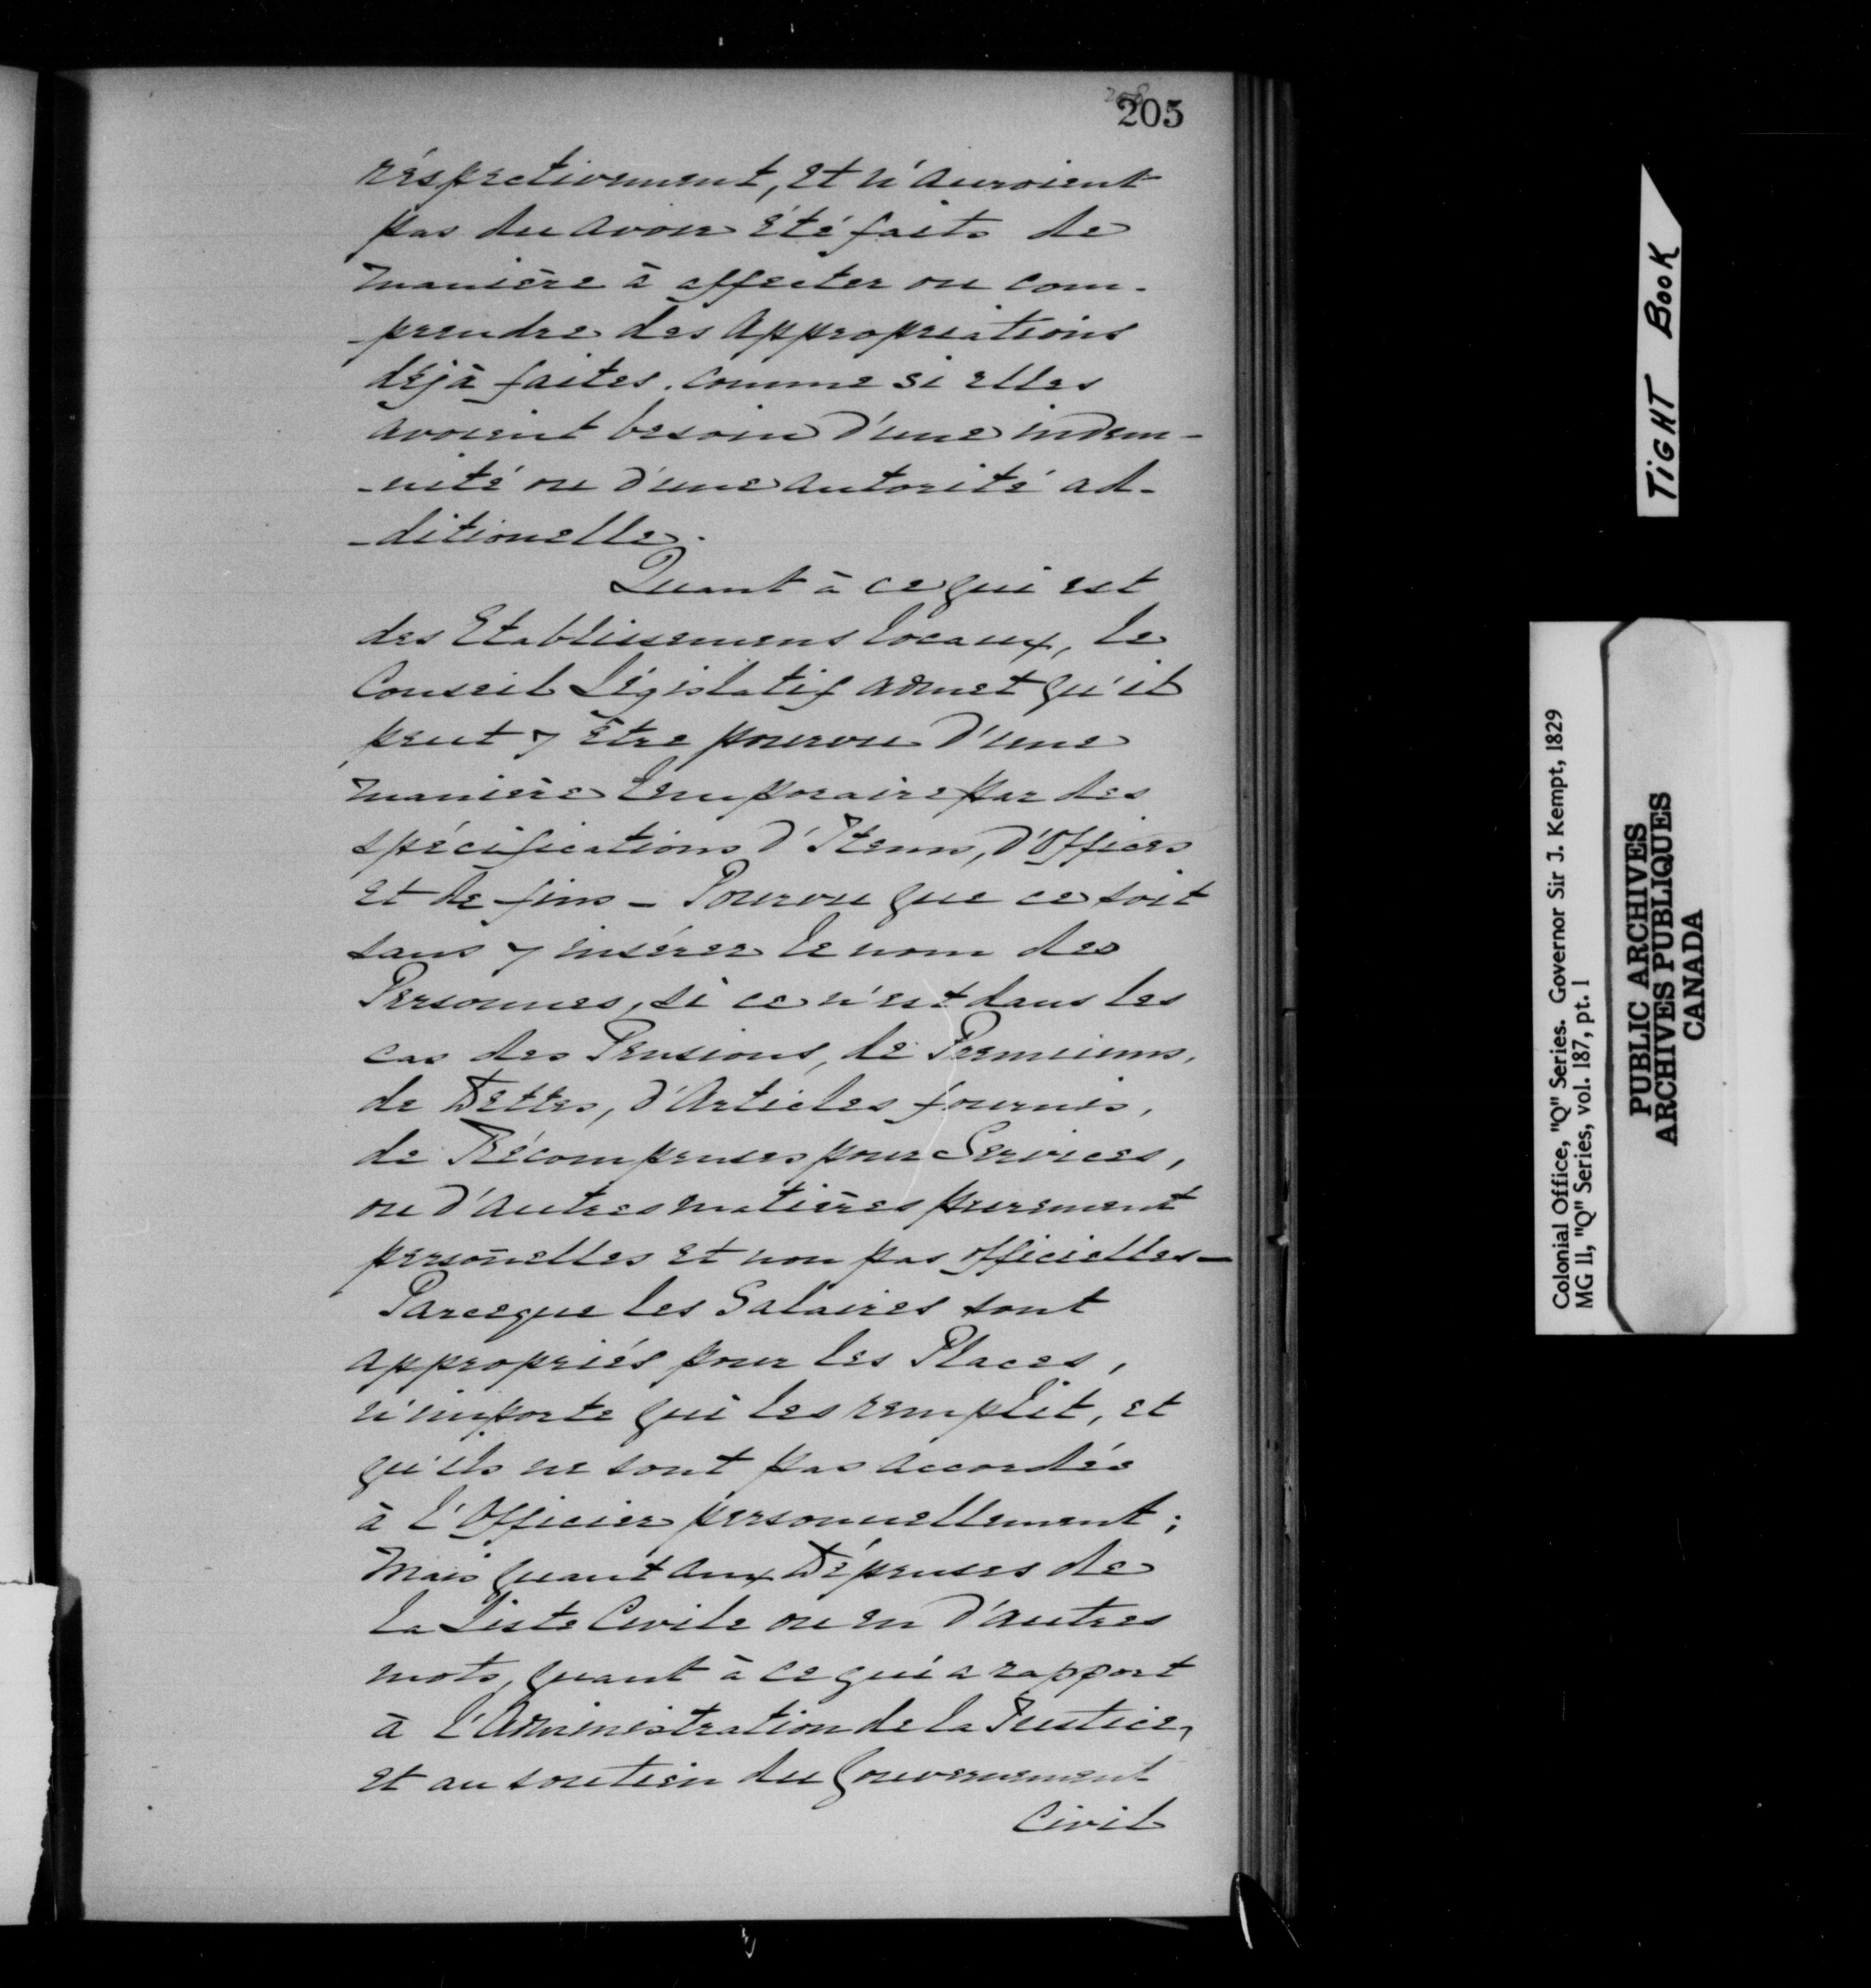 208
205
réspectivement, et n'auroient
pas du avoir été faits de
manière à affecter ou com-
-prendre des appropriations
déjà faites, comme si elles
avoient besoin d'une indem-
-nité ou d'une autorité ad-
-ditionelle.
Quant à ce qui est
des Etablissemens locaux, le
Conseil Législatif admet qu'il
peut y être pourvu d'une
manière temporaire par des
spécifications d'Items, d'Offices
et de fins - Pourvu que ce soit
sans y insérer le nom des
Personnes, si ce n'est dans les
cas des Pensions, de Premiums,
de Dettes, d'Articles fournis,
de Récompenses pour Services,
ou d'autres matières purement
personelles et non pas officielles—
Parceque les Salaires sont
appropriés pour les Places,
n'importe qui les remplit, et
qu'ils ne sont pas accordés
à l'Officier personnellement;
Mais quant aux Dépenses de
la Liste Civile ou en d'autres
mots, quant à ce qui a rapport
à l'Administration de la Justice,
et au soutien du Gouvernement
Civil
TIGHT BOOK
Colonial Office, "Q" Series. Governor Sir J. Kempt, 1829
MG 11, "Q" Series, vol. 187, pt. 1
PUBLIC ARCHIVES
ARCHIVES PUBLIQUES
CANADA